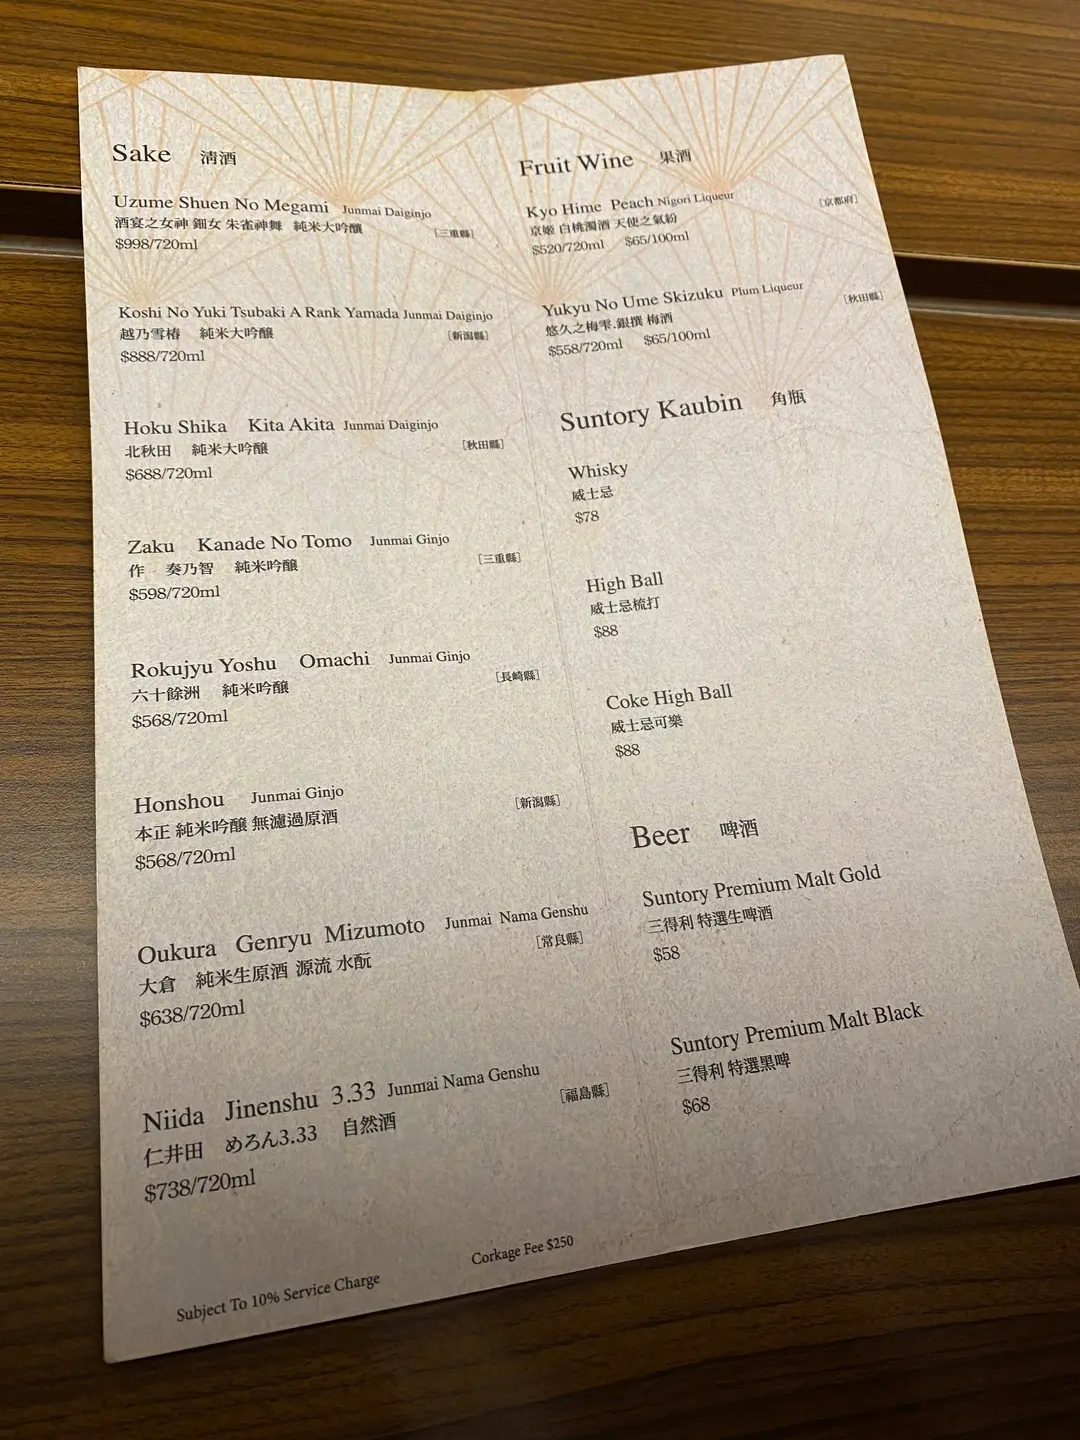 Sake 清酒
Uzume Shuen No Megami Junmai Daiginjo
酒宴之女神 鈿女 朱雀神舞 純米大吟釀 [三重縣]
$998/720ml
Koshi No Yuki Tsubaki A Rank Yamada Junmai Daiginjo
越乃雪椿 純米大吟釀 [新潟縣]
$888/720ml
Hoku Shika Kita Akita Junmai Daiginjo
北秋田 純米大吟釀 [秋田縣]
$688/720ml
Zaku Kanade No Tomo Junmai Ginjo
作 奏乃智 純米吟釀 [三重縣]
$598/720ml
Rokujyu Yoshu Omachi Junmai Ginjo
六十餘洲 純米吟釀 [長崎縣]
$568/720ml
Honshou Junmai Ginjo
本正 純米吟釀 無濾過原酒 [新潟縣]
$568/720ml
Oukura Genryu Mizumoto Junmai Nama Genshu
大倉 純米生原酒 源流 水酛 [常良縣]
$638/720ml
Niida Jinenshu 3.33 Junmai Nama Genshu
仁井田 めろん3.33 自然酒 [福島縣]
$738/720ml
Fruit Wine 果酒
Kyo Hime Peach Nigori Liqueur
京姬 白桃濁酒 天使之氣紛 [京都府]
$520/720ml $65/100ml
Yukyu No Ume Skizuku Plum Liqueur
悠久之梅雫.銀撰 梅酒 [秋田縣]
$558/720ml $65/100ml
Suntory Kaubin 角瓶
Whisky
威士忌
$78
High Ball
威士忌梳打
$88
Coke High Ball
威士忌可樂
$88
Beer 啤酒
Suntory Premium Malt Gold
三得利 特選生啤酒
$58
Suntory Premium Malt Black
三得利 特選黑啤
$68
Subject To 10% Service Charge
Corkage Fee $250